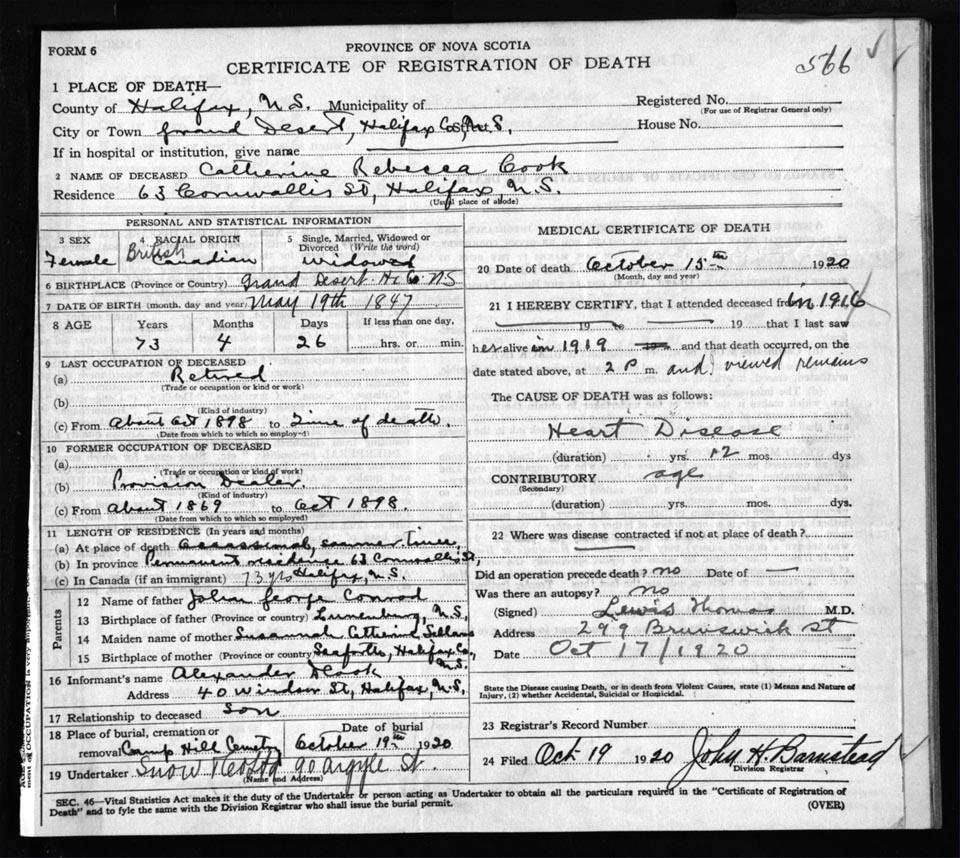 566
FORM 6
PROVINCE OF NOVA SCOTIA
CERTIFICATE OF REGISTRATION OF DEATH
1 PLACE OF DEATH—
County of Halifax, N.S. Municipality of
Registered No.
(For use of Registrar General only)
City or Town Grand Desert, Halifax Co, N.S. Street
House No.
If in hospital or institution, give name
2 NAME OF DECEASED Catherine Rebecca Cook
Residence 63 Cornwallis St, Halifax, N.S.
(Usual place of abode)
PERSONAL AND STATISTICAL INFORMATION
3 SEX
Female
4 RACIAL ORIGIN
British
Canadian
5 Single, Married, Widowed or
Divorced (Write the word)
Widowed
6 BIRTHPLACE (Province or Country) Grand Desert Hx Co NS
7 DATE OF BIRTH (month, day and year) May 19th 1847
8 AGE
Years Months Days If less than one day,
73 4 26 hrs. or min.
9 LAST OCCUPATION OF DECEASED
(a) Retired
(Trade or occupation or kind or work)
(b)
(Kind of industry)
(c) From About Oct 1898 to Time of death.
(Date from which to which so employed)
10 FORMER OCCUPATION OF DECEASED
(a)
(Trade or occupation or kind of work)
(b) Provision Dealer
(Kind of industry)
(c) From About 1869 to Oct 1898.
(Date from which to which so employed)
11 LENGTH OF RESIDENCE (In years and months)
(a) At place of death Occassional, summer times,
(b) In province Permanent residence 63 Cornwallis St,
(c) In Canada (if an immigrant) 73 yrs Halifax, N.S.
Parents
12 Name of father John George Conrod
13 Birthplace of father (Province or country) Lunenburg, N.S.
14 Maiden name of mother Susannah Catherine
15 Birthplace of mother (Province or country) Seaforth, Halifax Co, N.S.
16 Informant's name Alexander D Cook
Address 40 Windsor St, Halifax, N.S.
17 Relationship to deceased Son
18 Place of burial, cremation or
removal Camp Hill Cemetry
Date of burial
October 19th 1920
19 Undertaker Snow & Co Ltd 90 Argyle St.
(Name and Address)
MEDICAL CERTIFICATE OF DEATH
20 Date of death October 15th 1920
(Month, day and year)
21 I HEREBY CERTIFY, that I attended deceased from in 1916
19 to 19 that I last saw
her alive in 1919 and that death occurred, on the
date stated above, at 2 P m. and I viewed remains
The CAUSE OF DEATH was as follows:
Heart Disease
(duration) yrs. 12 mos. dys
CONTRIBUTORY age
(Secondary)
(duration) yrs. mos. dys.
22 Where was disease contracted if not at place of death?
Did an operation precede death? no Date of —
Was there an autopsy? no
(Signed) Lewis Thomas M.D.
Address 299 Brunswick st
Date Oct 17/1920
State the Disease causing Death, or in death from Violent Causes, state (1) Means and Nature of
Injury, (2) whether Accidental, Suicidal or Homicidal.
23 Registrar's Record Number
24 Filed Oct 19 1920 John H. Barnstead
Division Registrar
SEC. 46—Vital Statistics Act makes it the duty of the Undertaker or person acting as Undertaker to obtain all the particulars required in the "Certificate of Registration of
Death" and to fyle the same with the Division Registrar who shall issue the burial permit.
(OVER)